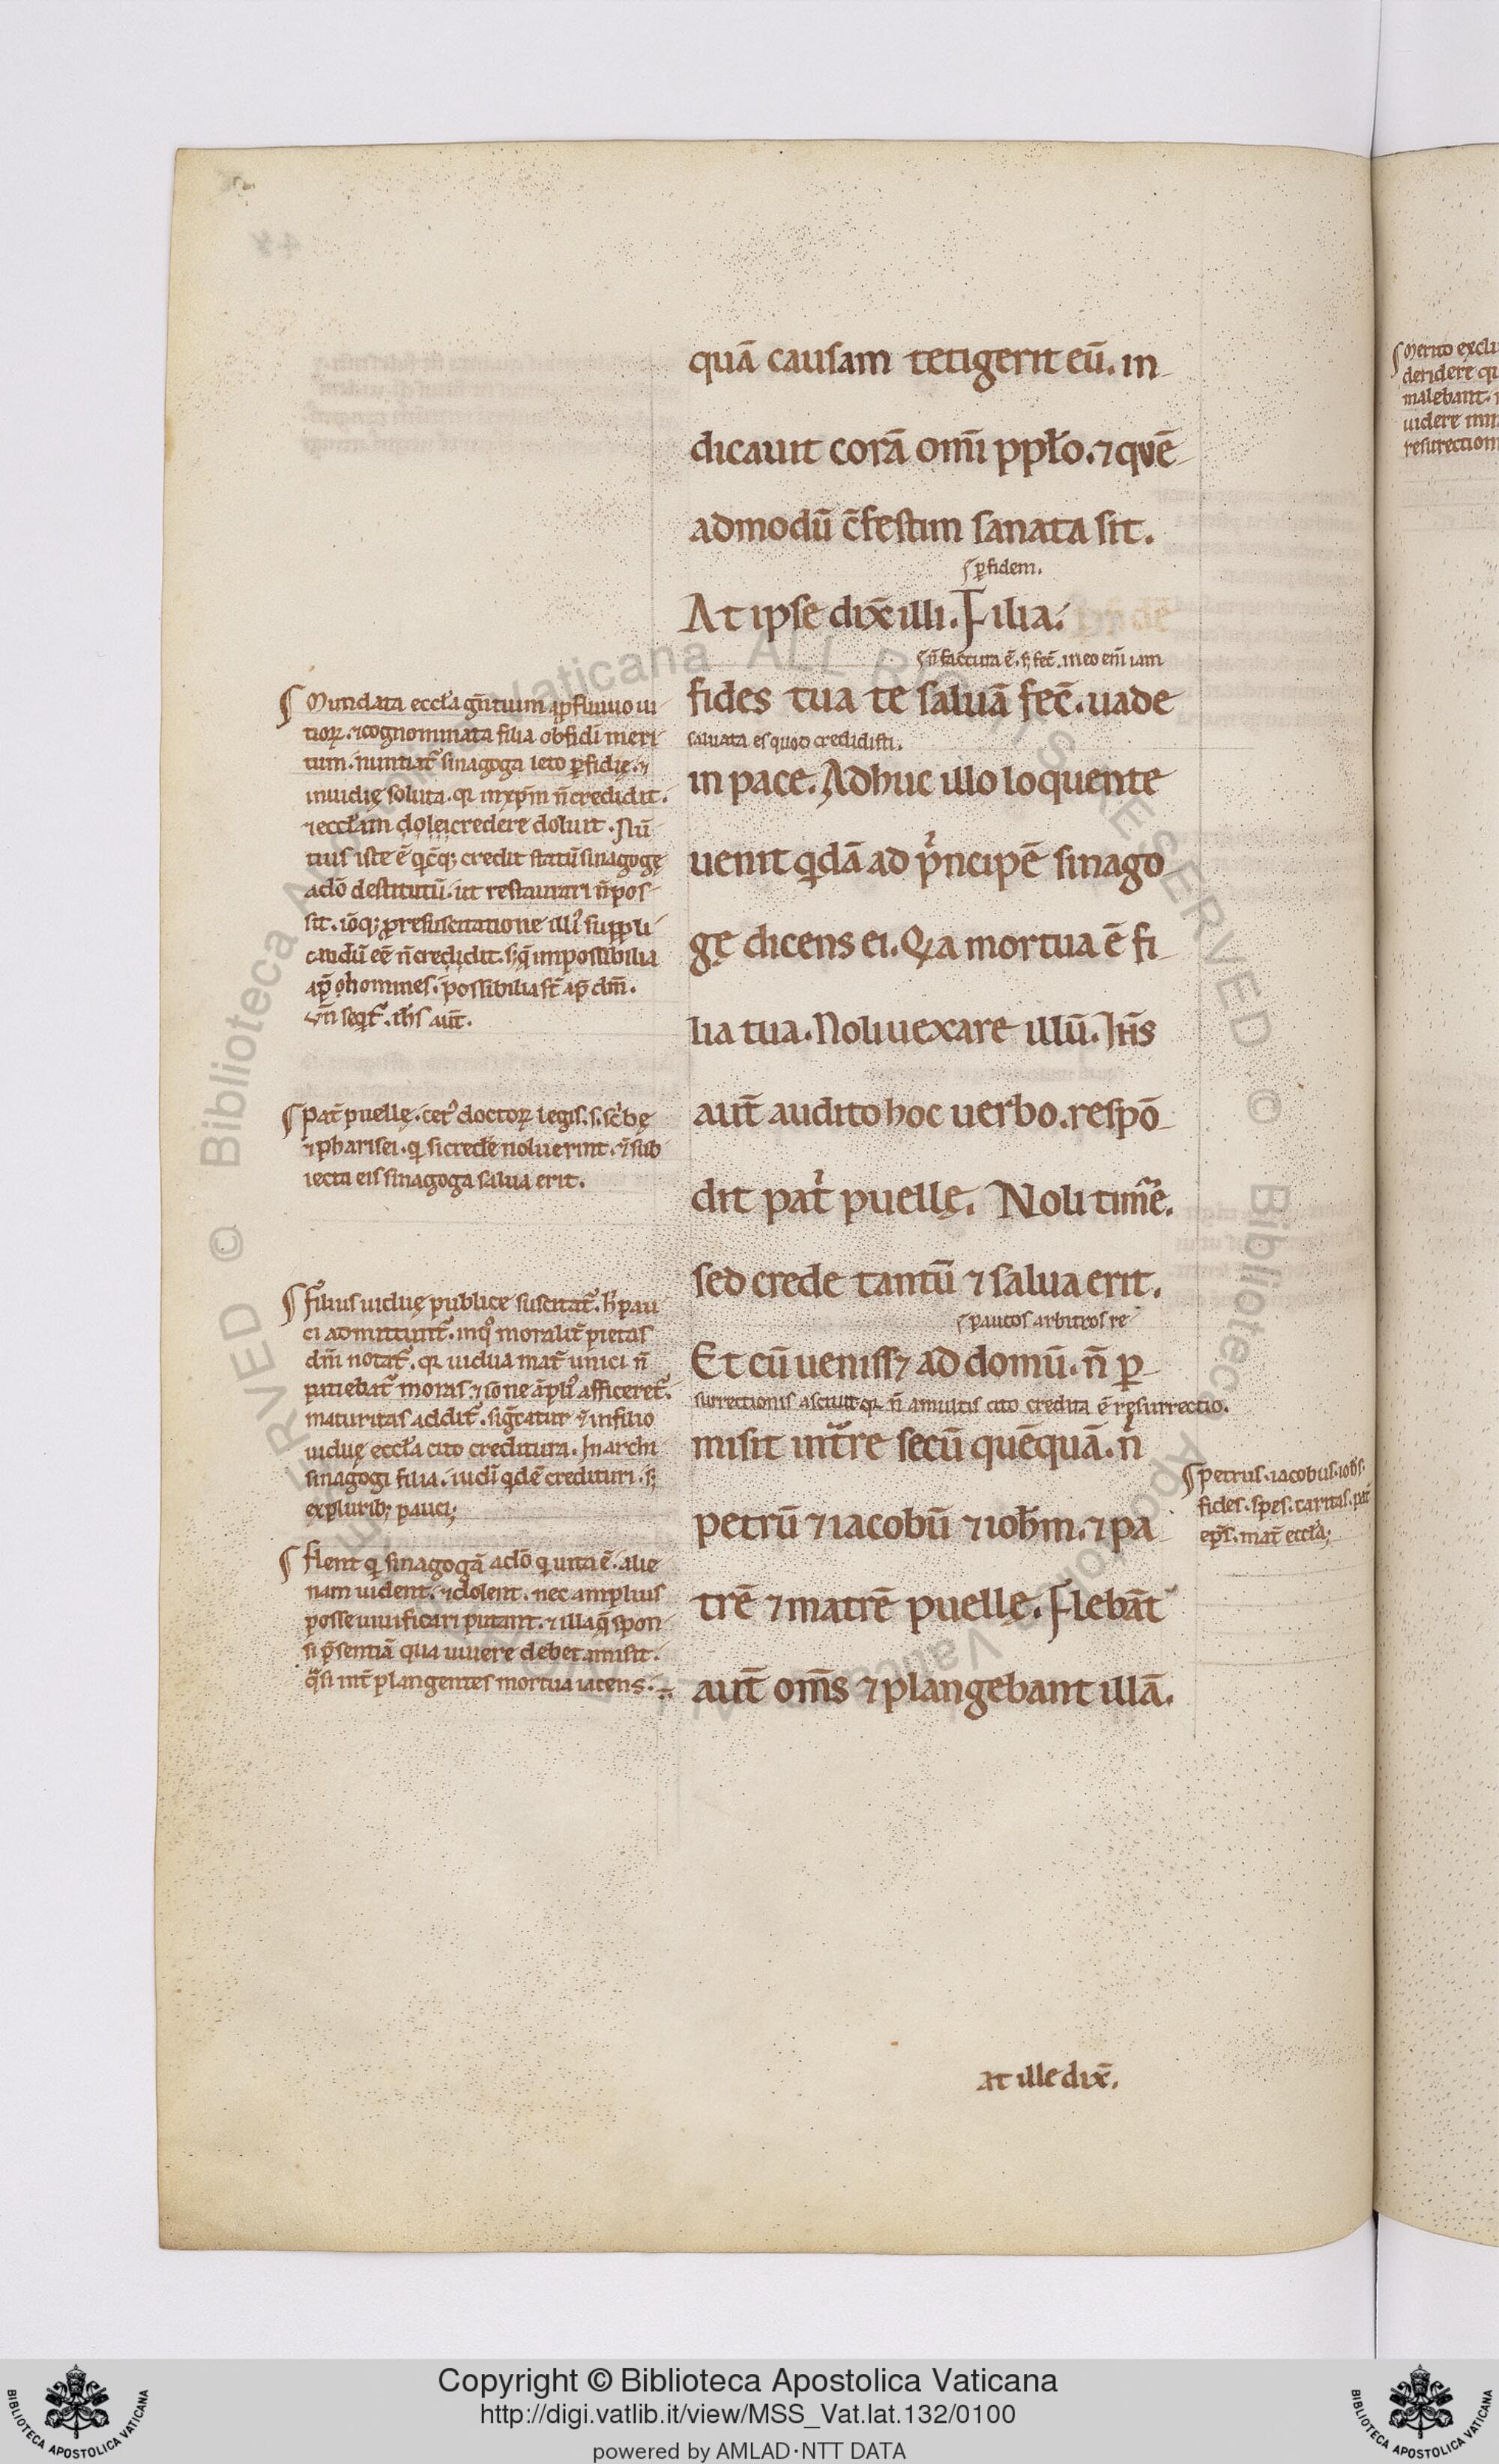 quā causam tetigerit eū. in-
dicauit corā om̄i ppło. ⁊ quē-
admodū c̄festim sanata sit.
p̱ fidem.
At ipse dix̄ illi. Filia.
n̄ factura ē. s; fec̄. in eo eni̅ iam
fides tua te saluā fec̄. uade
saluata es quod credidisti.
in pace. Adhuc illo loquente
uenit qdā ad pͥncipē sinago-
gę dicens ei. Qa mortua ē fi-
lia tua. Noli uexare illū. Ih̅s
aut̅ audito hoc uerbo. respō-
dit pat̓ puellę. Noli tim̅e.
sed crede tantū ⁊ salua erit.
paucos arbitros re-
Et cū ueniss& ad domū. n̄ p̱-
surrectionis asciuit qr n̄ a multis cito credita ē resurrectio.
misit intᵃre secū quēquā. n̄
petrū ⁊ iacobū ⁊ ioh̅m. ⁊ pa-
trē ⁊ matrē puellę. Flebāt
aut̅ om̅s ⁊ plangebant illā.
Mundata eccl̅a gn̅tium a p̱fluuio ui-
tior̨. ⁊ cognominata filia ob fidi meri-
tum. nuntiat̓ sinagoga leto p̱fidię. ⁊
inuidię soluta. qr in xp̅m n̄ credidit.
⁊ eccl̅am credere doluit. Nū-
tius iste ē qc̄q; credit statū sinagogę
adō destitutū. ut restaurari n̄ pos-
sit. iōq; p resuscitatione illiꝰ suppli-
candū eē n̄ credidit. s; q̄ impossibilia
ap̄ homines. possibilia st̄ ap̄ dm̅.
Vn̄ seqt̓. ih̅s aut̅.
Pat̓ puellę. cet̓ doctor̨ legis. s. sc̓bę
⁊ pharisei. q si credē noluerint. ⁊ sub-
iecta eis sinagoga salua erit.
Filius uiduę publice suscitat̓. h̓ pau-
ci admittunt̓. in qͦ moralit̓ pietas
dm̅ notat̓. qr uidua mat̓ unici n̄
patiebat̓ moras. ⁊ io ne āpliꝰ afficeret̓.
maturitas addit̓. sigͣcatur ⁊ in filio
uiduę eccl̅a cito creditura. In archi-
sinagogi filia. iudi̅ qdē credituri. s;
ex plurib; pauci;
Flent q sinagogā adō q uita ē. alie-
nam uident. ⁊ dolent. nec amplius
posse uiuificari putant. ⁊ illa q̄ spon-
si p̄sentiā qua uiuere debet amisit.
qͣsi int̓ plangentes mortua iacens.
Petrus. iacobus. ioh̅s.
fides. spes. caritas. pat̓
ep̅s. mat̓ eccl̅a;
at ille dix̄.
Merito exclu
deridere q
malebant.
uidere
resurection
Copyright © Biblioteca Apostolica Vaticana
http://digi.vatlib.it/view/MSS_Vat.lat.132/0100
powered by AMLAD·NTT DATA
BIBLIOTECA APOSTOLICA VATICANA
BIBLIOTECA APOSTOLICA VATICANA